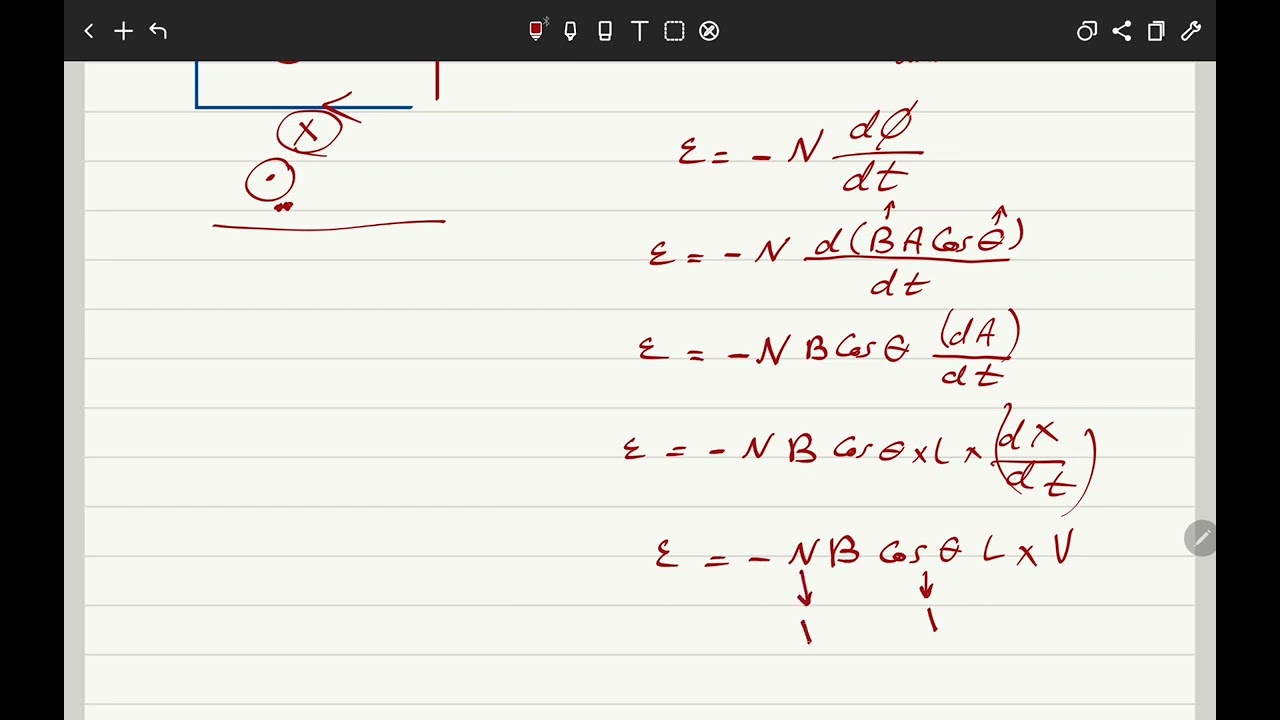 X
ε = - N dϕ/dt
ε = - N d(BA Cos θ)/dt
ε = - N B Cos θ (dA)/dt
ε = - N B Cos θ × L × (dx/dt)
ε = - N B Cos θ L × V
1 1